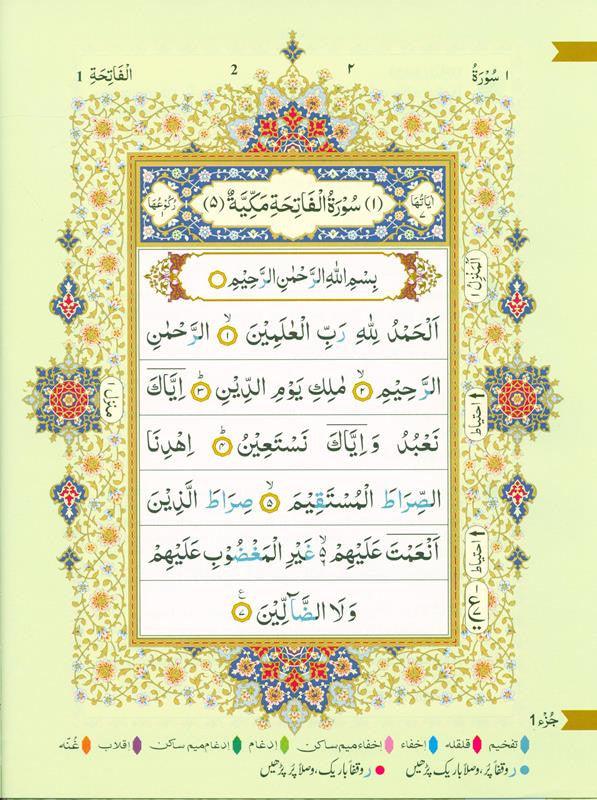 سُوْرَةُ ١ ٢ 2 اَلْفَاتِحَةِ 1
اٰيَاتُهَا ٧ (١) سُوْرَةُ الْفَاتِحَةِ مَكِّيَّةٌ (٥) رُكُوْعُهَا ١
بِسْمِ اللّٰهِ الرَّحْمٰنِ الرَّحِيْمِ
اَلْمَنْزِلُ ١
اَلْحَمْدُ لِلّٰهِ رَبِّ الْعٰلَمِيْنَ ۙ ١ الرَّحْمٰنِ
الرَّحِيْمِ ۙ ٢ مٰلِكِ يَوْمِ الدِّيْنِ ؕ ٣ اِيَّاكَ
منزل ١
احتیاط
نَعْبُدُ وَ اِيَّاكَ نَسْتَعِيْنُ ؕ ٤ اِهْدِنَا
الصِّرَاطَ الْمُسْتَقِيْمَ ۙ ٥ صِرَاطَ الَّذِيْنَ
اَنْعَمْتَ عَلَيْهِمْ ۙ ٦ غَيْرِ الْمَغْضُوْبِ عَلَيْهِمْ
احتیاط
وَلَا الضَّآلِّيْنَ ٧
جُزْء 1
تفخیم قلقله اخفاء اخفاء میم ساکن ادغام ادغام میم ساکن اقلاب غُنّه
ر وقفاً پُر، وصلاً باریک پڑھیں ر وقفاً باریک، وصلاً پُر پڑھیں